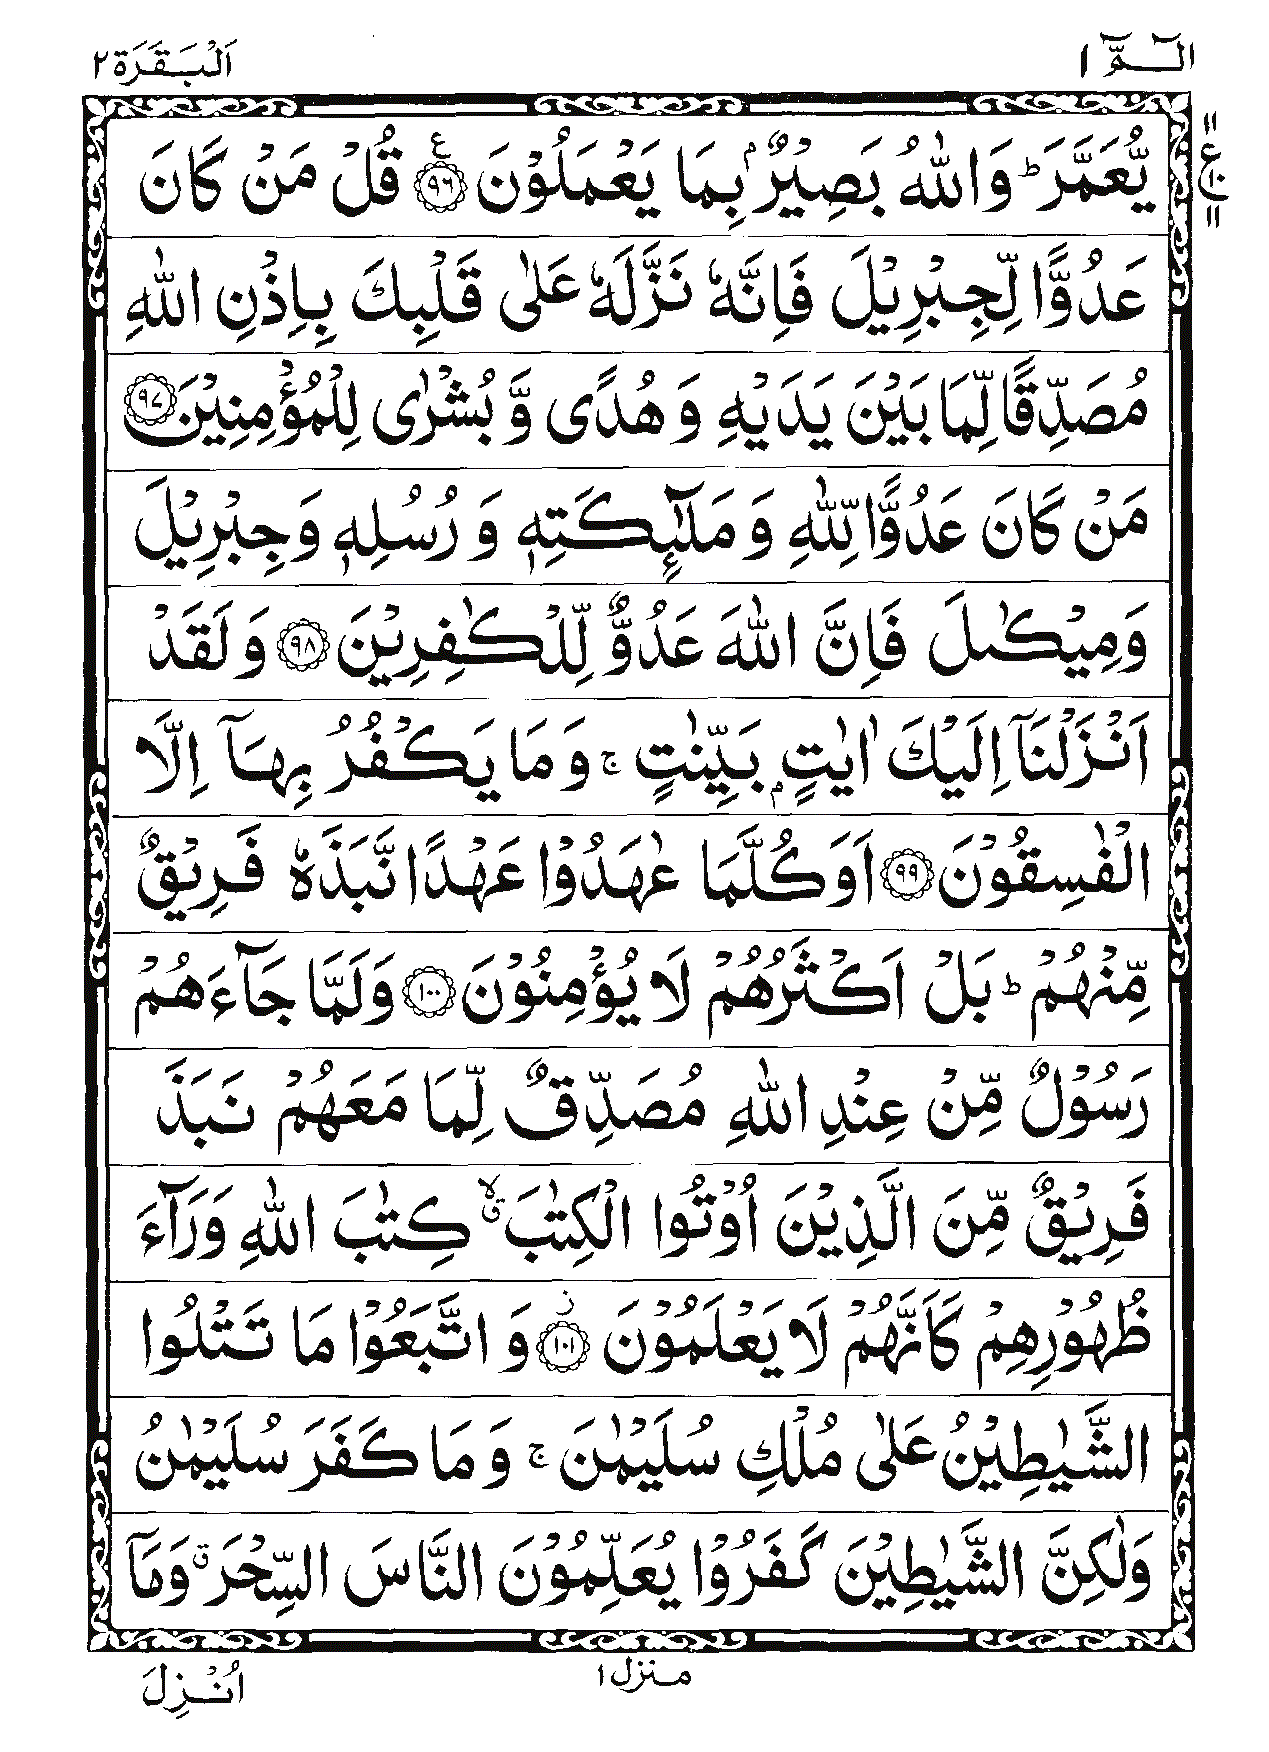 الٓـمّٓ ١ اَلْبَقَرَة ٢
يُّعَمَّرَ ؕ وَاللّٰهُ بَصِيْرٌۢ بِمَا يَعْمَلُوْنَ ﴿٩٦﴾ قُلْ مَنْ كَانَ
عَدُوًّا لِّجِبْرِيْلَ فَاِنَّهٗ نَزَّلَهٗ عَلٰى قَلْبِكَ بِاِذْنِ اللّٰهِ
مُصَدِّقًا لِّمَا بَيْنَ يَدَيْهِ وَ هُدًى وَّ بُشْرٰى لِلْمُؤْمِنِيْنَ ﴿٩٧﴾
مَنْ كَانَ عَدُوًّا لِّلّٰهِ وَ مَلٰٓئِكَتِهٖ وَ رُسُلِهٖ وَ جِبْرِيْلَ
وَمِيْكٰىلَ فَاِنَّ اللّٰهَ عَدُوٌّ لِّلْكٰفِرِيْنَ ﴿٩٨﴾ وَ لَقَدْ
اَنْزَلْنَاۤ اِلَيْكَ اٰيٰتٍۭ بَيِّنٰتٍ ۚ وَ مَا يَكْفُرُ بِهَاۤ اِلَّا
الْفٰسِقُوْنَ ﴿٩٩﴾ اَوَكُلَّمَا عٰهَدُوْا عَهْدًا نَّبَذَهٗ فَرِيْقٌ
مِّنْهُمْ ؕ بَلْ اَكْثَرُهُمْ لَا يُؤْمِنُوْنَ ﴿١٠٠﴾ وَلَمَّا جَآءَهُمْ
رَسُوْلٌ مِّنْ عِنْدِ اللّٰهِ مُصَدِّقٌ لِّمَا مَعَهُمْ نَبَذَ
فَرِيْقٌ مِّنَ الَّذِيْنَ اُوْتُوا الْكِتٰبَ ۙۗ كِتٰبَ اللّٰهِ وَرَآءَ
ظُهُوْرِهِمْ كَاَنَّهُمْ لَا يَعْلَمُوْنَ ﴿١٠١﴾ وَ اتَّبَعُوْا مَا تَتْلُوا
الشَّيٰطِيْنُ عَلٰى مُلْكِ سُلَيْمٰنَ ۚ وَ مَا كَفَرَ سُلَيْمٰنُ
وَلٰكِنَّ الشَّيٰطِيْنَ كَفَرُوْا يُعَلِّمُوْنَ النَّاسَ السِّحْرَ ۗ وَمَاۤ
منزل ١
اُنْزِلَ